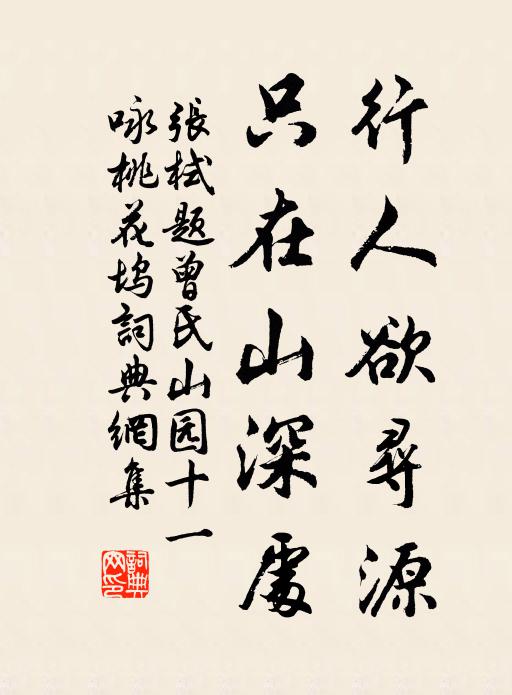 行人欲尋源
只在山深處
張栻題曾氏山园十一
咏桃花坞詞典網集
詞典网印